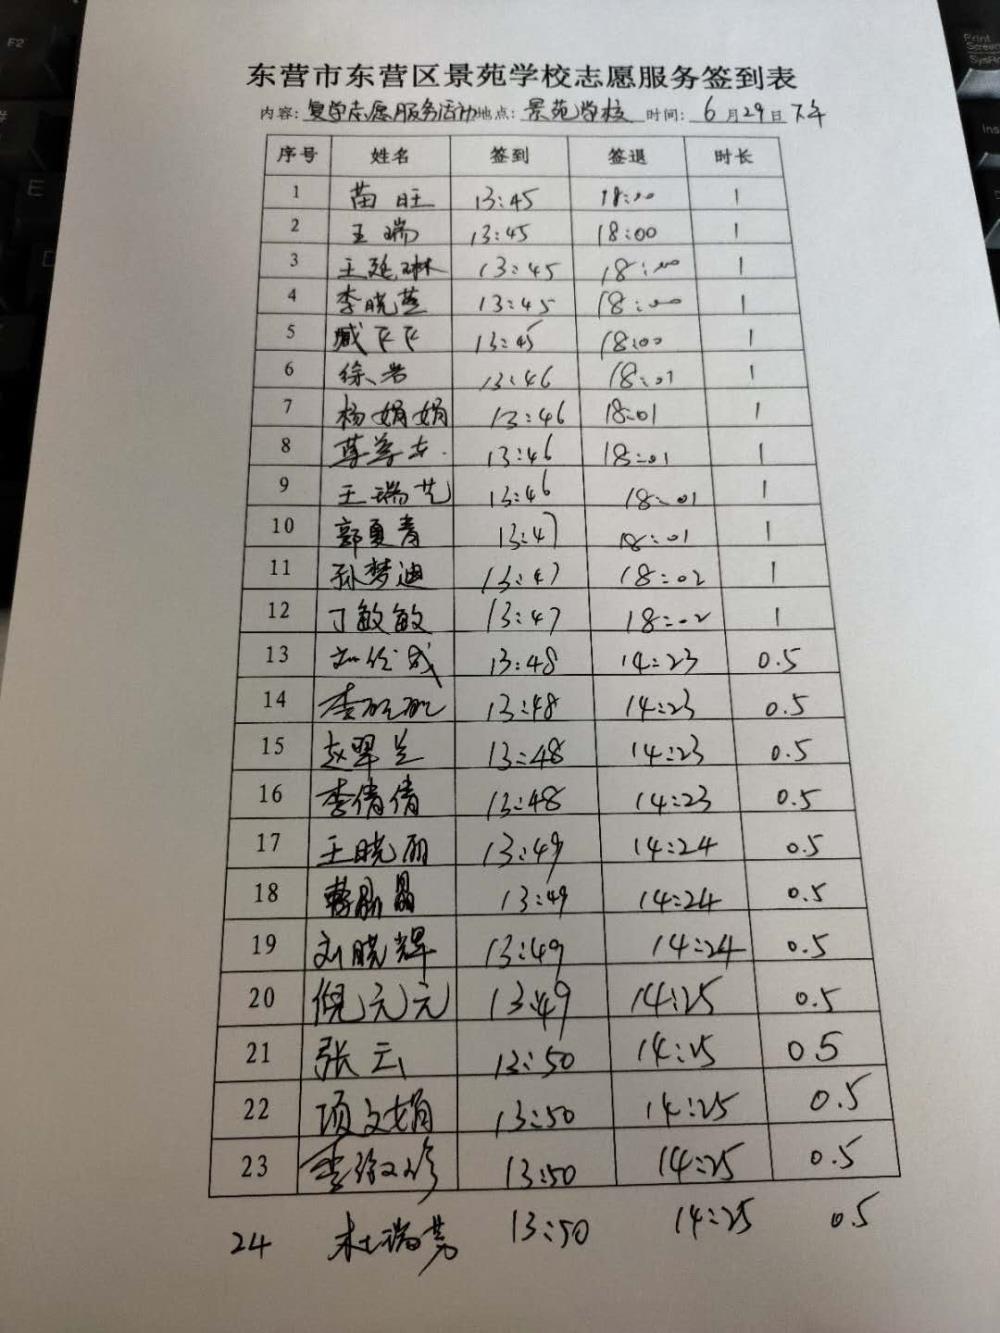 东营市东营区景苑学校志愿服务签到表
内容: 复学志愿服务活动 地点: 景苑学校 时间: 6月29日下午
序号 姓名 签到 签退 时长
1 苗旺 13:45 18:00 1
2 王瑞 13:45 18:00 1
3 王延琳 13:45 18:00 1
4 李晓燕 13:45 18:00 1
5 臧下下 13:45 18:00 1
6 徐岩 13:46 18:01 1
7 杨娟娟 13:46 18:01 1
8 13:46 18:01 1
9 王瑞芝 13:46 18:01 1
10 郭夏青 13:47 18:01 1
11 孙梦迪 13:47 18:02 1
12 丁敏敏 13:47 18:02 1
13 13:48 14:23 0.5
14 李 13:48 14:23 0.5
15 赵翠兰 13:48 14:23 0.5
16 李倩倩 13:48 14:23 0.5
17 王晓丽 13:49 14:24 0.5
18 晶 13:49 14:24 0.5
19 刘晓辉 13:49 14:24 0.5
20 倪元元 13:49 14:25 0.5
21 张云 13:50 14:25 0.5
22 项文娟 13:50 14:25 0.5
23 李 13:50 14:25 0.5
24 杜瑞芳 13:50 14:25 0.5